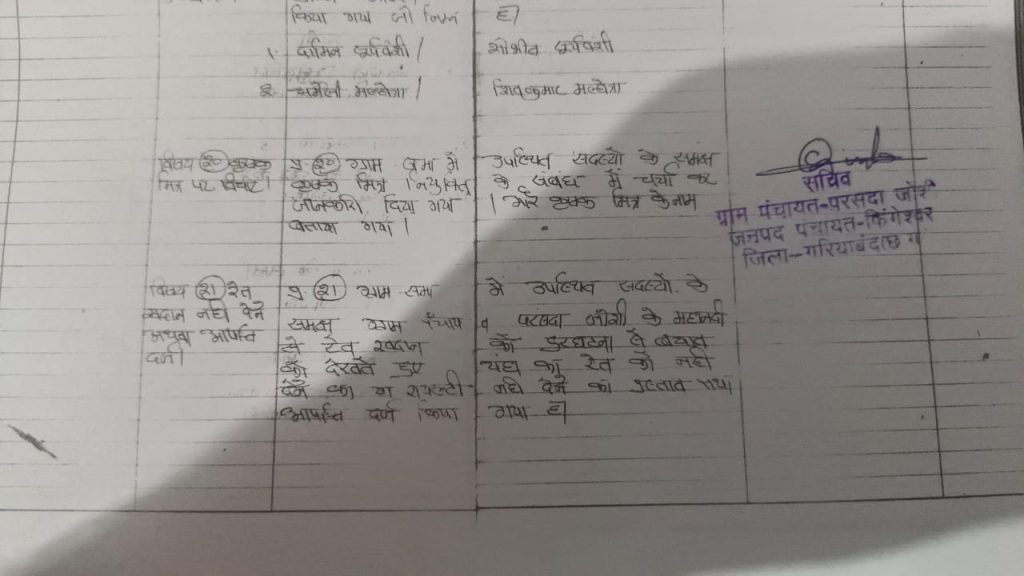 किया गया जो निम्न है।
१. दामिन सूर्यवंशी / शोभीत सूर्यवंशी
२. चमेली मल्होत्रा / शिवकुमार मल्होत्रा
विषय २० कृषक
मित्र पर विचार।
प्र. २० ग्राम सभा में उपस्थित सदस्यों के समक्ष
कृषक मित्र नियुक्ति के संबंध में चर्चा कर
जानकारी दिया गया। और कृषक मित्र के नाम
बताया गया।
विषय २१ रेत
खदान नही देने
अथवा आपत्ति
दर्ज।
प्र. २१ ग्राम सभा में उपस्थित सदस्यों के
समक्ष ग्राम पंचायत परसदा जोशी के महानदी
से रेत खदान को दुरघटना से बचाव
को देखते हुए यहां का रेत को नही
देने का व रायल्टी नही देने का प्रस्ताव
आपत्ति दर्ज किया गया है।
सचिव
ग्राम पंचायत-परसदा जोशी
जनपद पंचायत-फिंगेश्वर
जिला-गरियाबंद छ ग